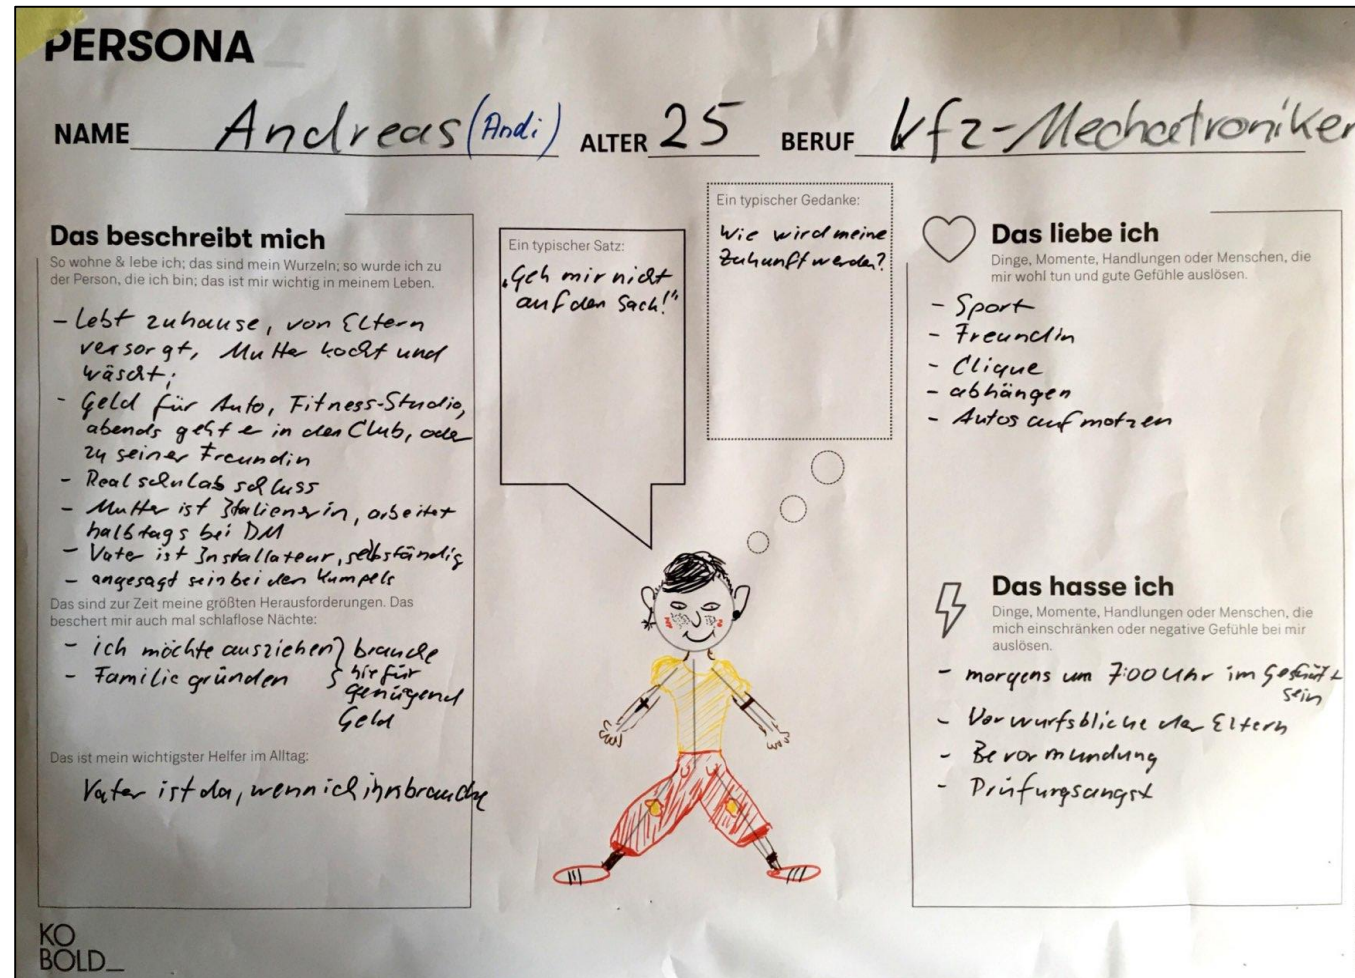 PERSONA
NAME Andreas (Andi) ALTER 25 BERUF Kfz-Mechatroniker
Das beschreibt mich
So wohne & lebe ich; das sind mein Wurzeln; so wurde ich zu
der Person, die ich bin; das ist mir wichtig in meinem Leben.
- Lebt zuhause, von Eltern
versorgt, Mutter kocht und
wäscht;
- Geld für Auto, Fitness-Studio,
abends geht er in den Club, oder
zu seiner Freundin
- Realschulabschluss
- Mutter ist Italienerin, arbeitet
halbtags bei DM
- Vater ist Installateur, selbständig
- angesagt sein bei den Kumpels
Das sind zur Zeit meine größten Herausforderungen. Das
beschert mir auch mal schlaflose Nächte:
- ich möchte ausziehen } brauche
- Familie gründen } hirfür
genügend
Geld
Das ist mein wichtigster Helfer im Alltag:
Vater ist da, wenn ich ihn brauche
Ein typischer Satz:
„Geh mir nicht
auf den Sack!"
Ein typischer Gedanke:
Wie wird meine
Zukunft werden?
Das liebe ich
Dinge, Momente, Handlungen oder Menschen, die
mir wohl tun und gute Gefühle auslösen.
- Sport
- Freundin
- Clique
- abhängen
- Autos aufmotzen
Das hasse ich
Dinge, Momente, Handlungen oder Menschen, die
mich einschränken oder negative Gefühle bei mir
auslösen.
- morgens um 7:00 Uhr im Geschäft
sein
- Vorwurfsblicke der Eltern
- Bevormundung
- Prüfungsangst
KO
BOLD_